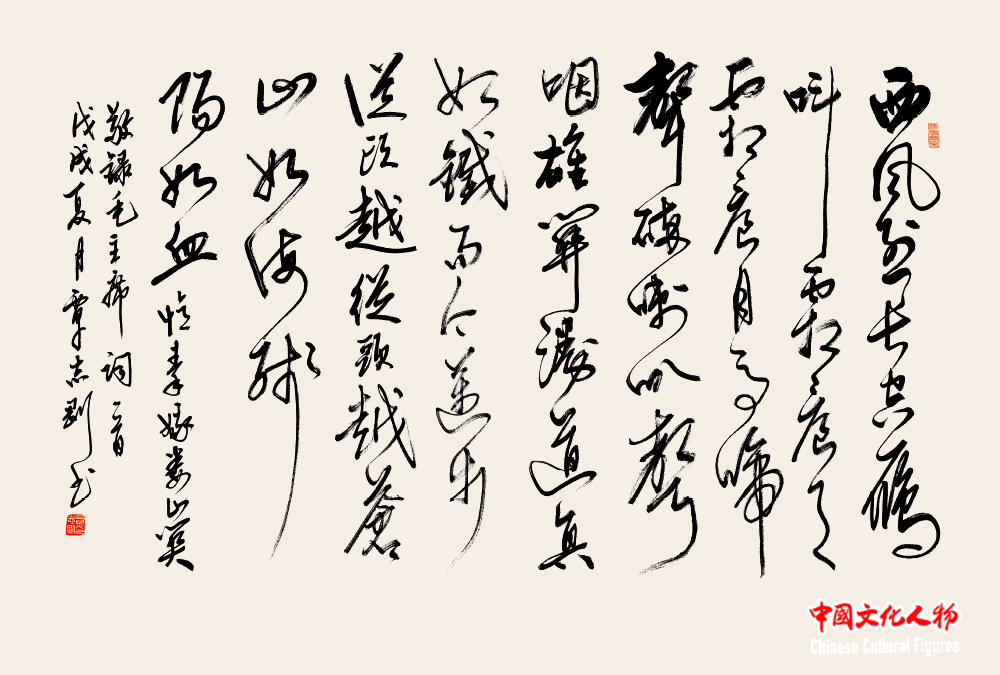 西風烈長空鴈
叫霜晨月
霜晨月馬啼
聲碎喇叭聲
咽雄關漫道真
如鐵而今邁步
從頭越從頭越蒼
山如海殘
陽如血憶秦娥婁山關
敬録毛主席詞一首
戊戌夏月覃志剛书
中國文化人物
Chinese Cultural Figures